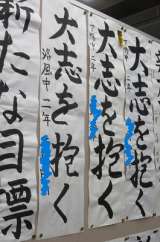 大志を抱く
二年
大志を抱く
中二年
大志を抱く
中二年
新たな目標